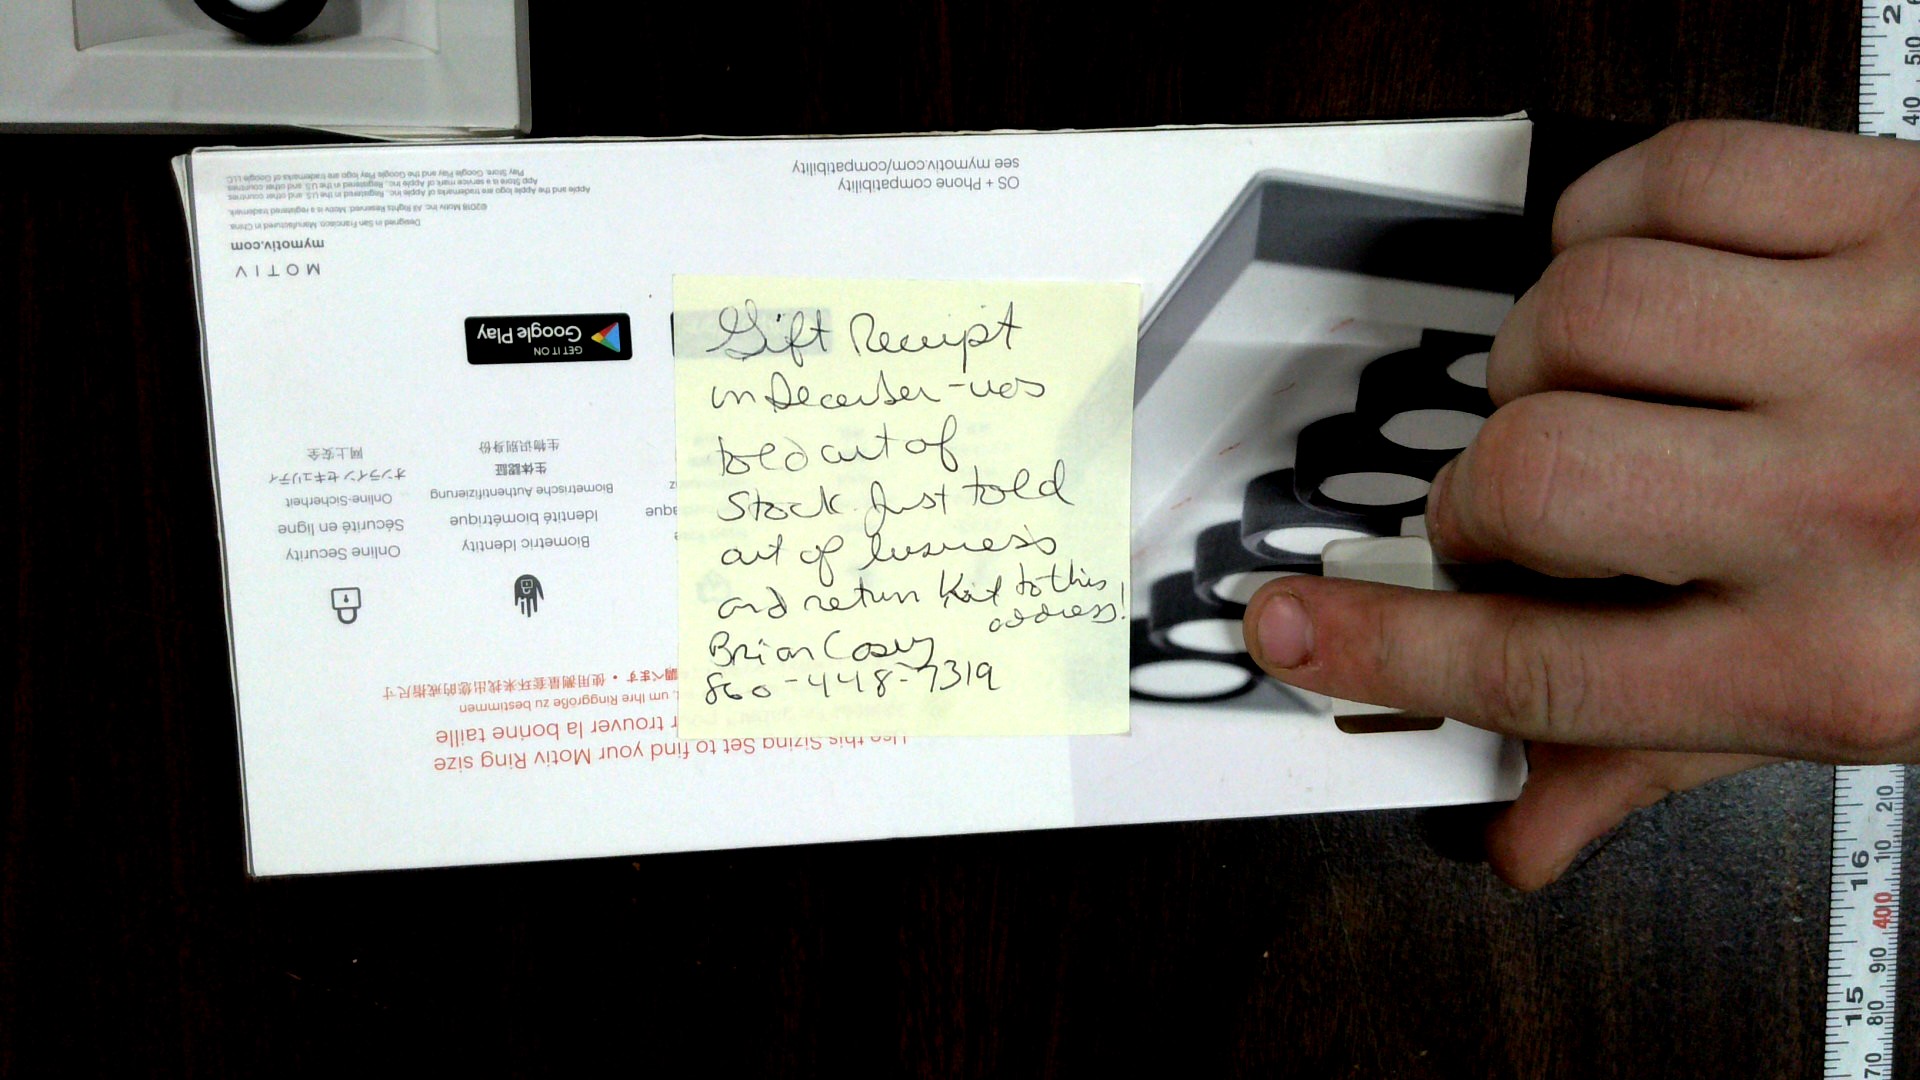 Gift Receipt
in December - was
told out of
stock. Just told
out of business
and return kit to this
address!
Brian Casey
860-448-7319
Use this Sizing Set to find your Motiv Ring size
r trouver la bonne taille
um Ihre Ringgröße zu bestimmen
調べます • 使用测量套环来找出您的戒指尺寸
Online Security
Sécurité en ligne
Online-Sicherheit
オンラインセキュリティ
网上安全
Biometric Identity
Identité biométrique
Biometrische Authentifizierung
生体認証
生物识别身份
GET IT ON
Google Play
MOTIV
mymotiv.com
Designed in San Francisco. Manufactured in China.
©2018 Motiv Inc. All Rights Reserved. Motiv is a registered trademark.
Apple and the Apple logo are trademarks of Apple Inc., Registered in the U.S. and other countries.
App Store is a service mark of Apple Inc., Registered in the U.S. and other countries.
Play Store, Google Play and the Google Play logo are trademarks of Google LLC.
OS + Phone compatibility
see mymotiv.com/compatibility
2
50
40
20
10
16
400
90
15
80
70